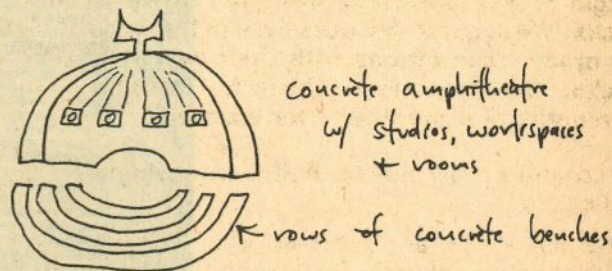 concrete amphitheatre
w/ studios, workspaces
+ rooms
rows of concrete benches